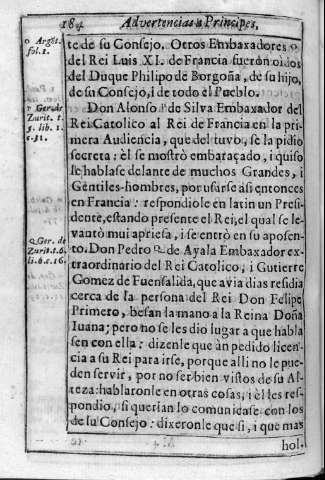 184 Advertencias a Principes.
o Argēt.
fol. 1.
te de su Consejo. Otros Embaxadores o
del Rei Luis XI. de Francia fueron oidos
del Duque Philipo de Borgoña, de su hijo,
de su Consejo, i de todo el Pueblo.
p Ger. de
Zurit. t.
5. lib. 1.
c. 31.
Don Alonso p de Silva Embaxador del
Rei Catolico al Rei de Francia en la pri
mera Audiencia, que del tuvo, se la pidio
secreta: èl se mostrò embaraçado, i quiso
le hablase delante de muchos Grandes, i
Gentiles-hombres, por usarse asi entonces
en Francia: respondiole en latin un Presi
dente, estando presente el Rei, el qual se le
vantò mui apriesa, i se entrò en su aposen
q Ger. de
Zurit. t. 6.
li. 6. c. 16.
to. Don Pedro q de Ayala Embaxador ex
traordinario del Rei Catolico, i Gutierre
Gomez de Fuensalida, que avia dias residia
cerca de la persona del Rei Don Felipe
Primero, besan la mano a la Reina Doña
Iuana; pero no se les dio lugar a que habla
sen con ella: dizenle que àn pedido licen
cia a su Rei para irse, porque alli no le pue
den servir, por no ser bien vistos de su Al
teza: hablaronle en otras cosas, i èl les res
pondio, si querian lo comunicase con los
de su Consejo: dixeronle que si, i que mas
hol-